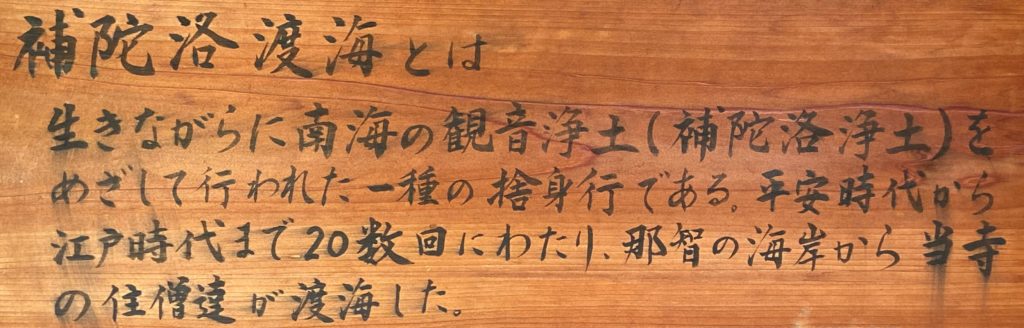 補陀洛渡海とは
生きながらに南海の観音浄土(補陀洛浄土)を
めざして行われた一種の捨身行である。平安時代から
江戸時代まで20数回にわたり、那智の海岸から当寺
の住僧達が渡海した。